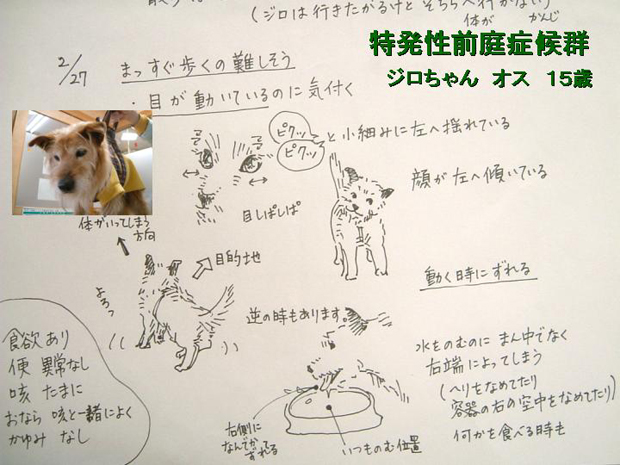 (ジロは行きたがるけど そちらへ行かない)
体が かんじ
特発性前庭症候群
ジロちゃん オス 15歳
2/27 まっすぐ歩くの難しそう
・目が動いているのに気付く
ピクッ
ピクッ
と小細みに左へ揺れている
目しぱしぱ
顔が左へ傾いている
体がいってしまう
方向
目的地
よろっ
動く時にずれる
逆の時もあります。
食欲 あり
便 異常なし
咳 たまに
おなら 咳と一緒によく
かゆみ なし
水をのむのに まん中でなく
右端によってしまう
(ヘリをなめてたり
容器の右の空中をなめてたり)
何かを食べる時も
右側に
なんでかって
ずれる
いつものむ位置